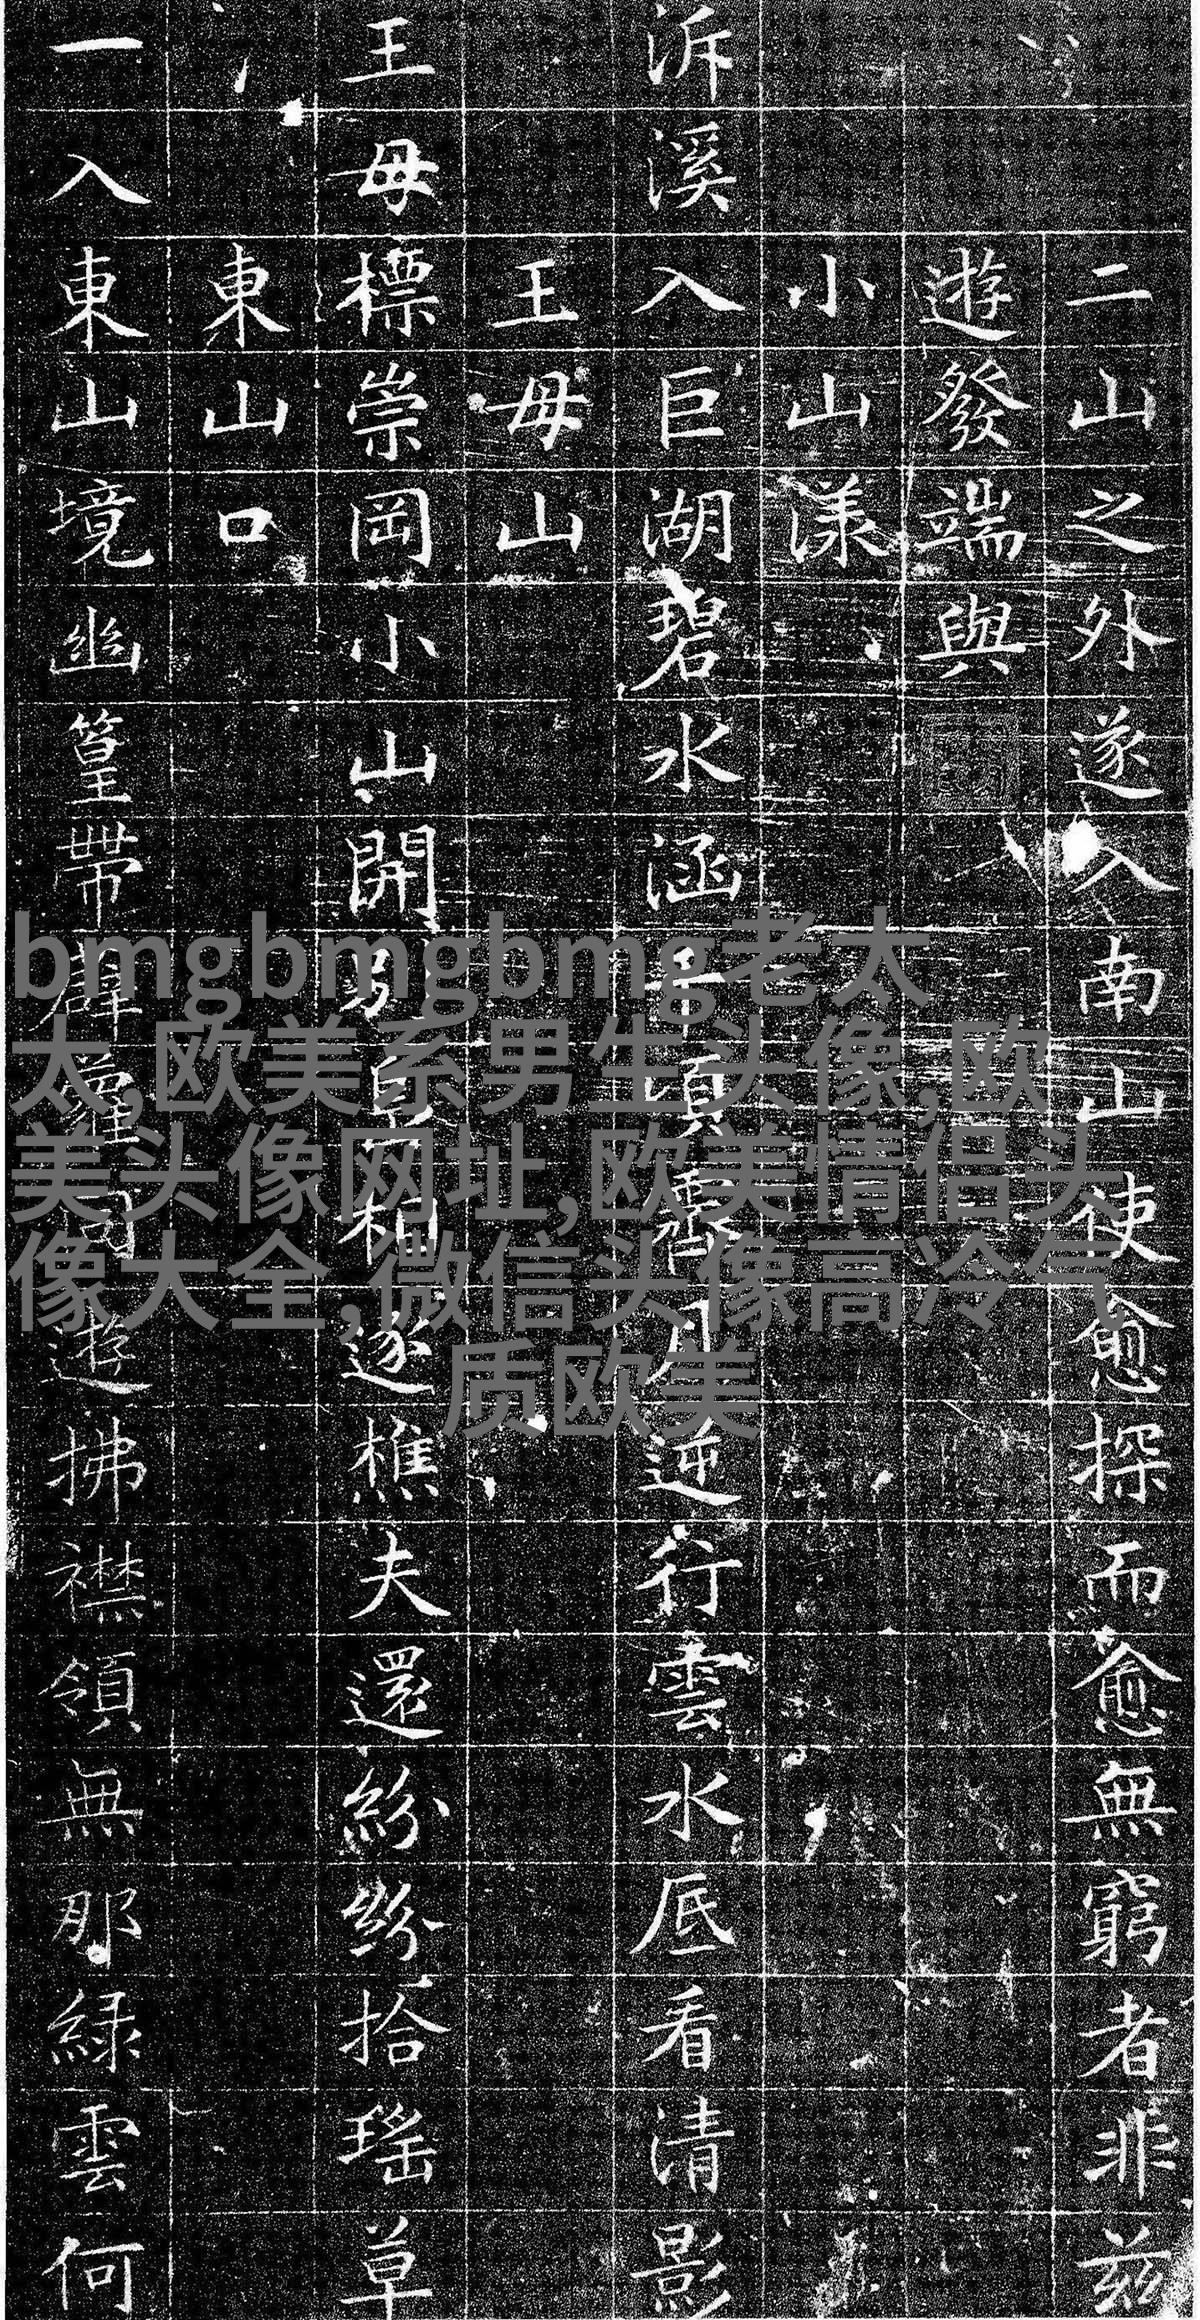 二山之外遂入南山使愈探而愈無窮者非茲
遊發端與
小山漾
泝溪入巨湖碧水涵千頃霽月逆行雲水底看清影
王母山
王母標崇岡小山開別相逐樵夫還紛紛拾瑤草
東山口
一入東山境幽篁帶薜蘿遊拂襟領無那緑雲何
bmgbmgbmg老太
太,欧美系男生头像,欧
美头像网址,欧美情侣头
像大全,微信头像高冷气
质欧美